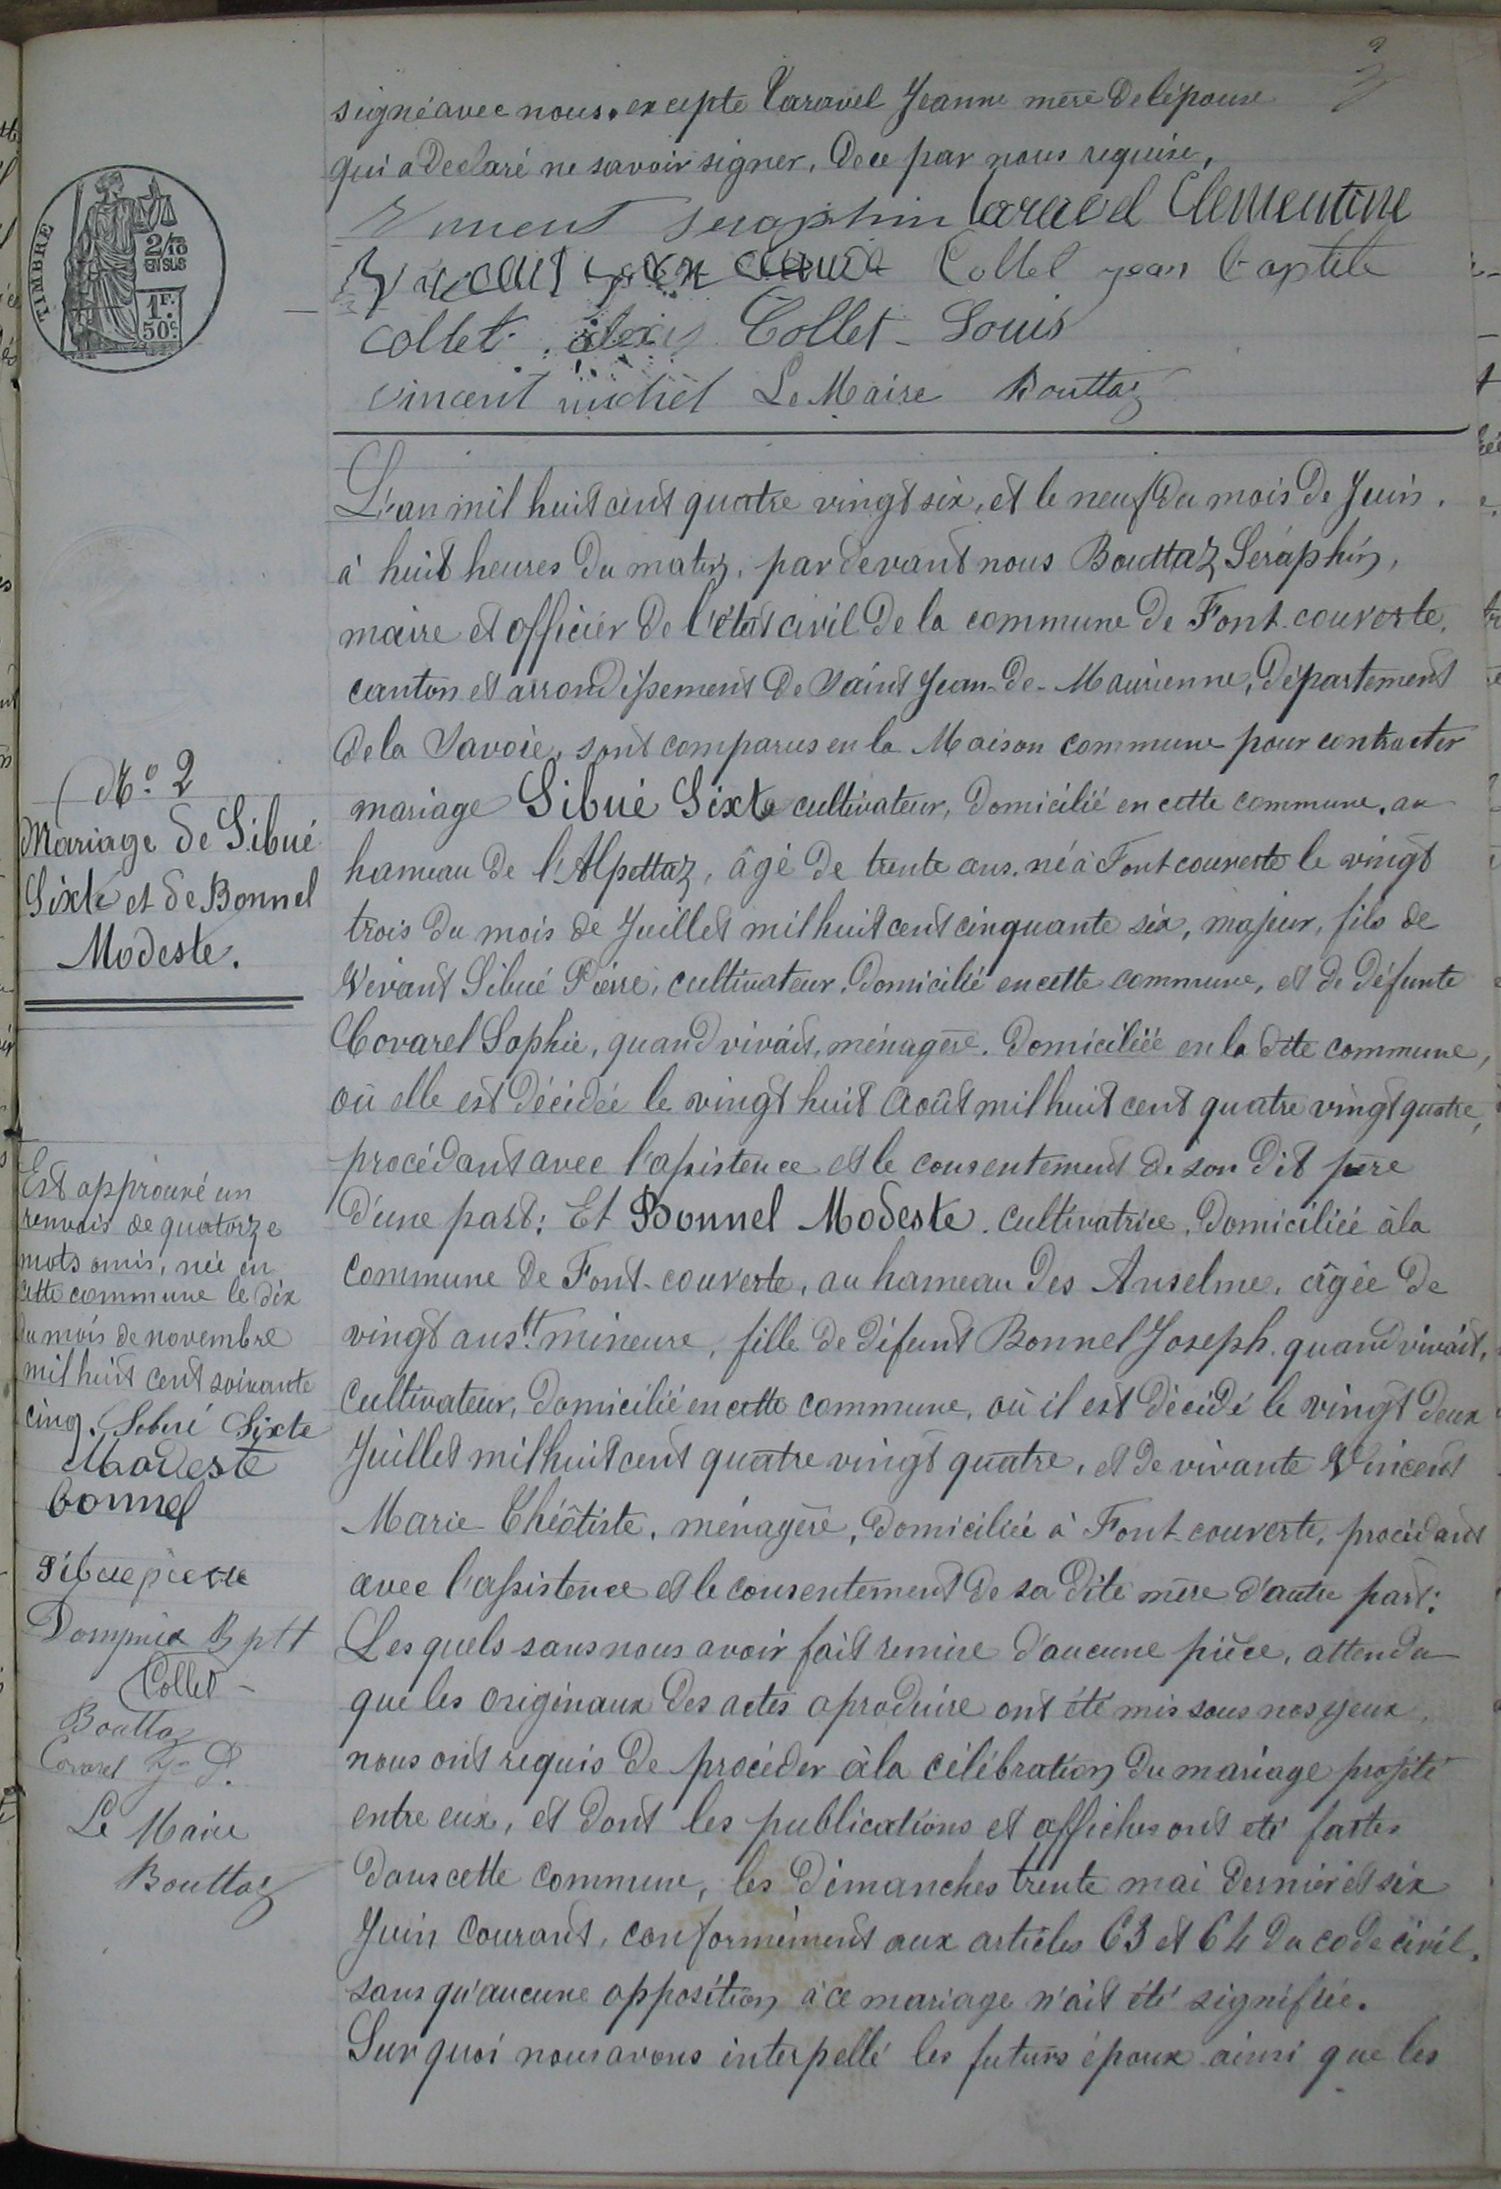 signé avec nous. excepte Taravel Jeanne mère de l'épouse
qui a declaré ne savoir signer, de ce par nous requise,
Vincent Seraphin Taravel Clementine
Vincent jean Collet jean baptite
Collet alexis Collet Louis
Vincent michel Le Maire Bouttaz
TIMBRE
2/10
EN SUS
1F.
50c.
L'an mil huit cent quatre vingt six, et le neuf du mois de Juin.
à huit heures du matin, par devant nous Bouttaz Séraphin,
maire et officier de l'état civil de la commune de Font-couverte,
canton et arrondissement de Saint Jean-de-Maurienne, département
de la Savoie, sont comparus en la Maison commune pour contracter
mariage Sibué Sixte cultivateur, domicilié en cette commune, au
hameau de l'Alpettaz, âgé de trente ans. né à Fontcouverte le vingt
trois du mois de Juillet mil huit cent cinquante six, majeur, fils de
Vivant Sibué Pierre, cultivateur, domicilié en cette commune, et de défunte
Covarel Sophie, quand vivait, ménagère. domiciliée en la dite commune,
où elle est décédée le vingt huit Août mil huit cent quatre vingt quatre,
procédant avec l'assistence et le consentement de son dit père
d'une part: Et Bonnel Modeste. cultivatrice, domiciliée à la
commune de Font-couverte, au hameau des Anselme, âgée de
vingt ans. mineure, fille de défunt Bonnel Joseph. quand vivait,
cultivateur, domicilié en cette commune, où il est décédé le vingt deux
Juillet mil huit cent quatre vingt quatre, et de vivante Vincent
Marie Théotiste, ménagère, domiciliée à Font-couverte, procédant
avec l'assistence et le consentement de sa dite mère d'autre part:
Lesquels sans nous avoir fait remise d'aucune pièce, attendu
que les originaux des actes a produire ont été mis sous nos yeux,
nous ont requis de procéder à la célébration du mariage projeté
entre eux, et dont les publications et affiches ont été faites
dans cette commune, les dimanches trente mai dernier et six
Juin courant, conformément aux articles 63 et 64 du code civil,
sans qu'aucune opposition à ce mariage n'ait été signifiée.
Sur quoi nous avons interpellé les futurs époux ainsi que les
No. 2
Mariage de Sibué
Sixte et de Bonnel
Modeste.
Est approuvé un
renvois de quatorze
mots omis, née en
cette commune le dix
du mois de novembre
mil huit cent soixante
cinq. Sibué Sixte
Modeste
bonnel
Sibue pierre
Dompnier Bptt
Collet
Bouttaz
Covarel J. P.
Le Maire
Bouttaz